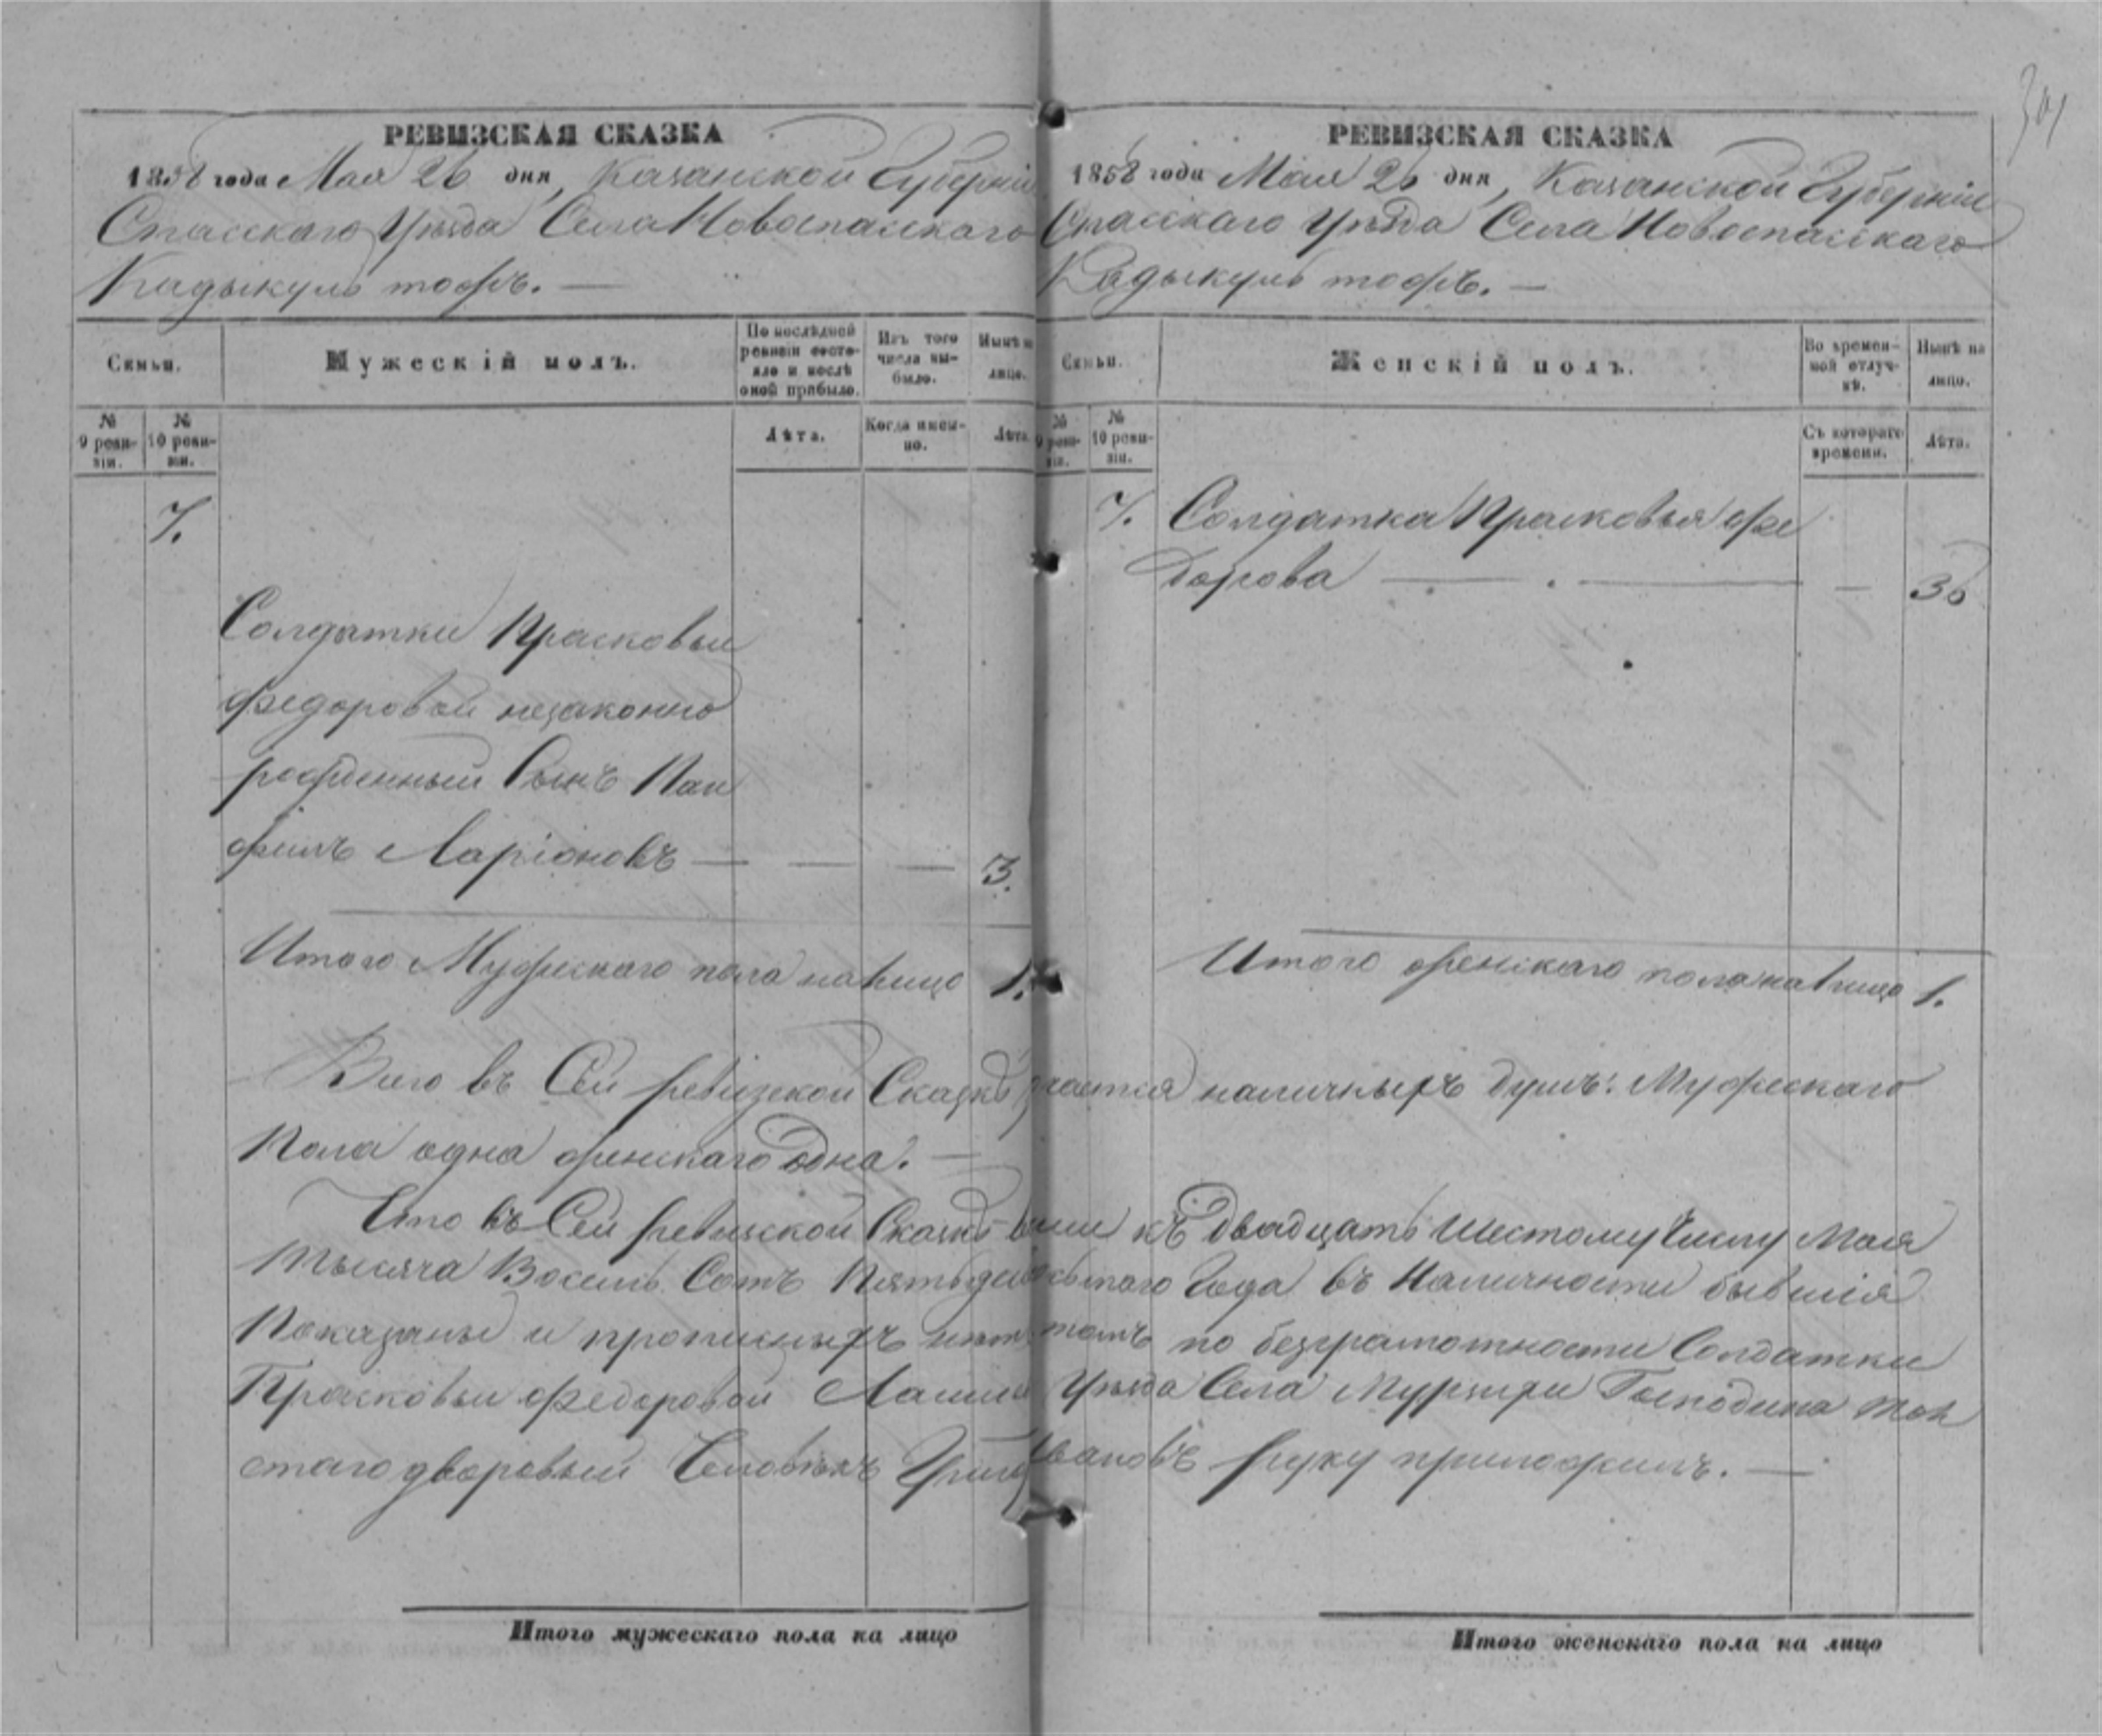 РЕВИЗСКАЯ СКАЗКА
1858 года Мая 26 дня, Казанской Губерніи
Спасскаго Уѣзда Села Новоспасскаго
Кадыкуль тожъ. —
Семьи.
Мужескій полъ.
По послѣдней
ревизіи состо-
яло и послѣ
оной прибыло.
Изъ того
числа вы-
было.
Нынѣ на
лицо.
№
9 реви-
зіи.
№
10 реви-
зіи.
Лѣта.
Когда имен-
но.
Лѣта.
7.
Солдатки Прасковьи
Федоровой незаконно
рожденный Сынъ Пан
филъ Ларіоновъ — — — 3.
Итого Мужескаго пола на лицо 1.
РЕВИЗСКАЯ СКАЗКА
1858 года Мая 26 дня, Казанской Губерніи
Спасскаго Уѣзда Села Новоспасскаго
Кадыкуль тожъ. —
Семьи.
Женскій полъ.
Во времен-
ной отлуч-
кѣ.
Нынѣ на
лицо.
№
9 реви-
зіи.
№
10 реви-
зіи.
Съ котораго
времени.
Лѣта.
7. Солдатка Прасковья Фе
дорова — — — 36
Итого женскаго пола на лицо 1.
Всего въ Сей ревизской Сказкѣ наличныхъ душъ: Мужескаго
Пола одна женскаго одна. —
Что въ Сей ревизской Сказкѣ къ двадцать Шестому Числу Мая
Тысяча Восемь Сотъ Пятьдесять Года въ Наличности бывшія
Показаны и прописныхъ нѣтъ по безграмотности Солдатки
Прасковьи Федоровой Лаишев Уѣзда Села Мурзихи Господина Тол
стаго дворовый Человѣкъ Григ Ивановъ руку приложилъ. —
Итого мужескаго пола на лицо
Итого женскаго пола на лицо